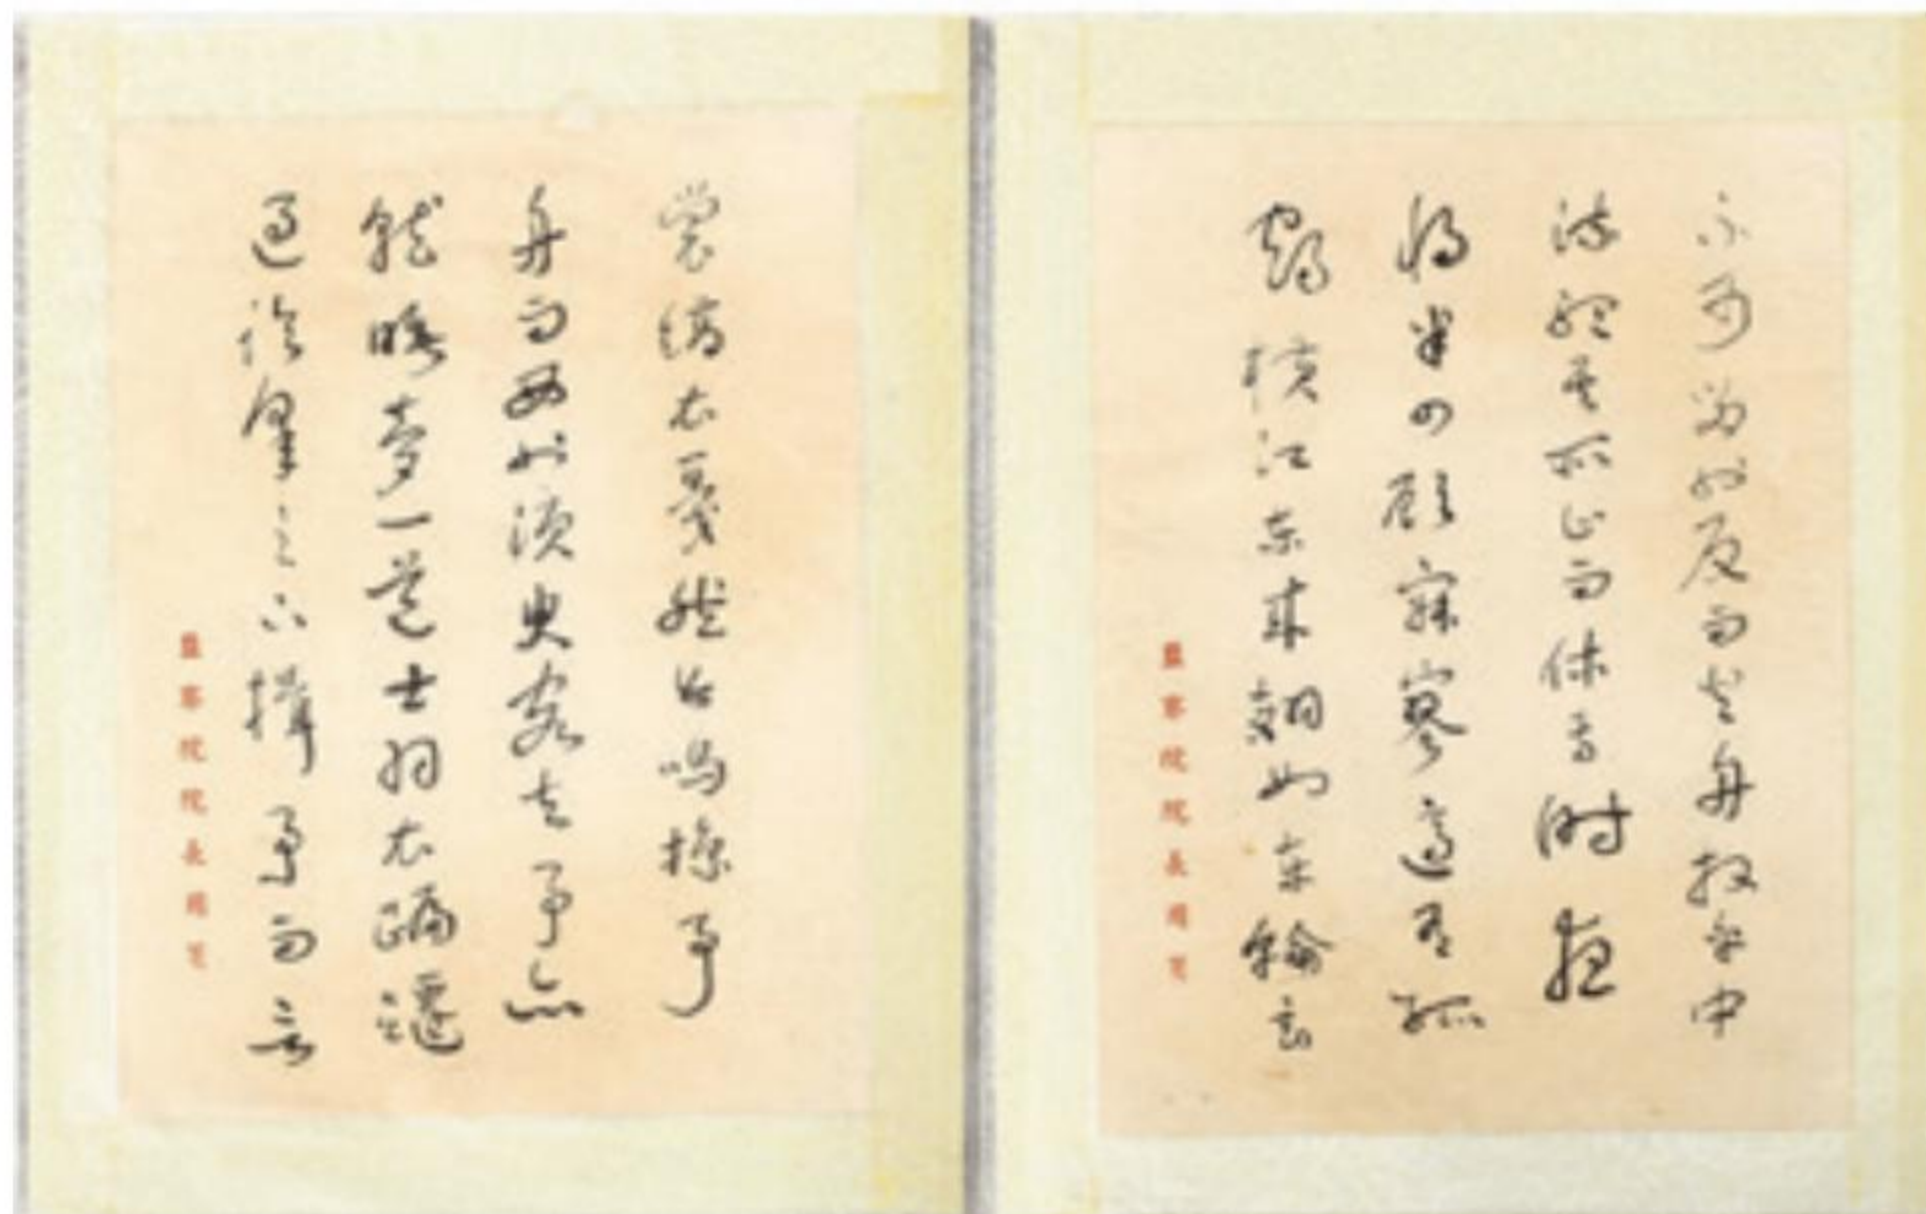 不可留也反而登舟放乎中
流聽其所止而休焉時夜
將半四顧寂寥適有孤
鶴橫江東來翅如車輪玄
監察院院長用箋
裳縞衣戛然長鳴掠予
舟而西也須臾客去予亦
就睡夢一道士羽衣蹁躚
過臨皋之下揖予而言
監察院院長用箋